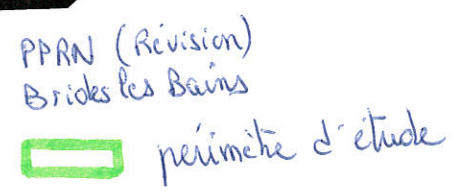 PPRN (Révision)
Brides les Bains
périmètre d'étude